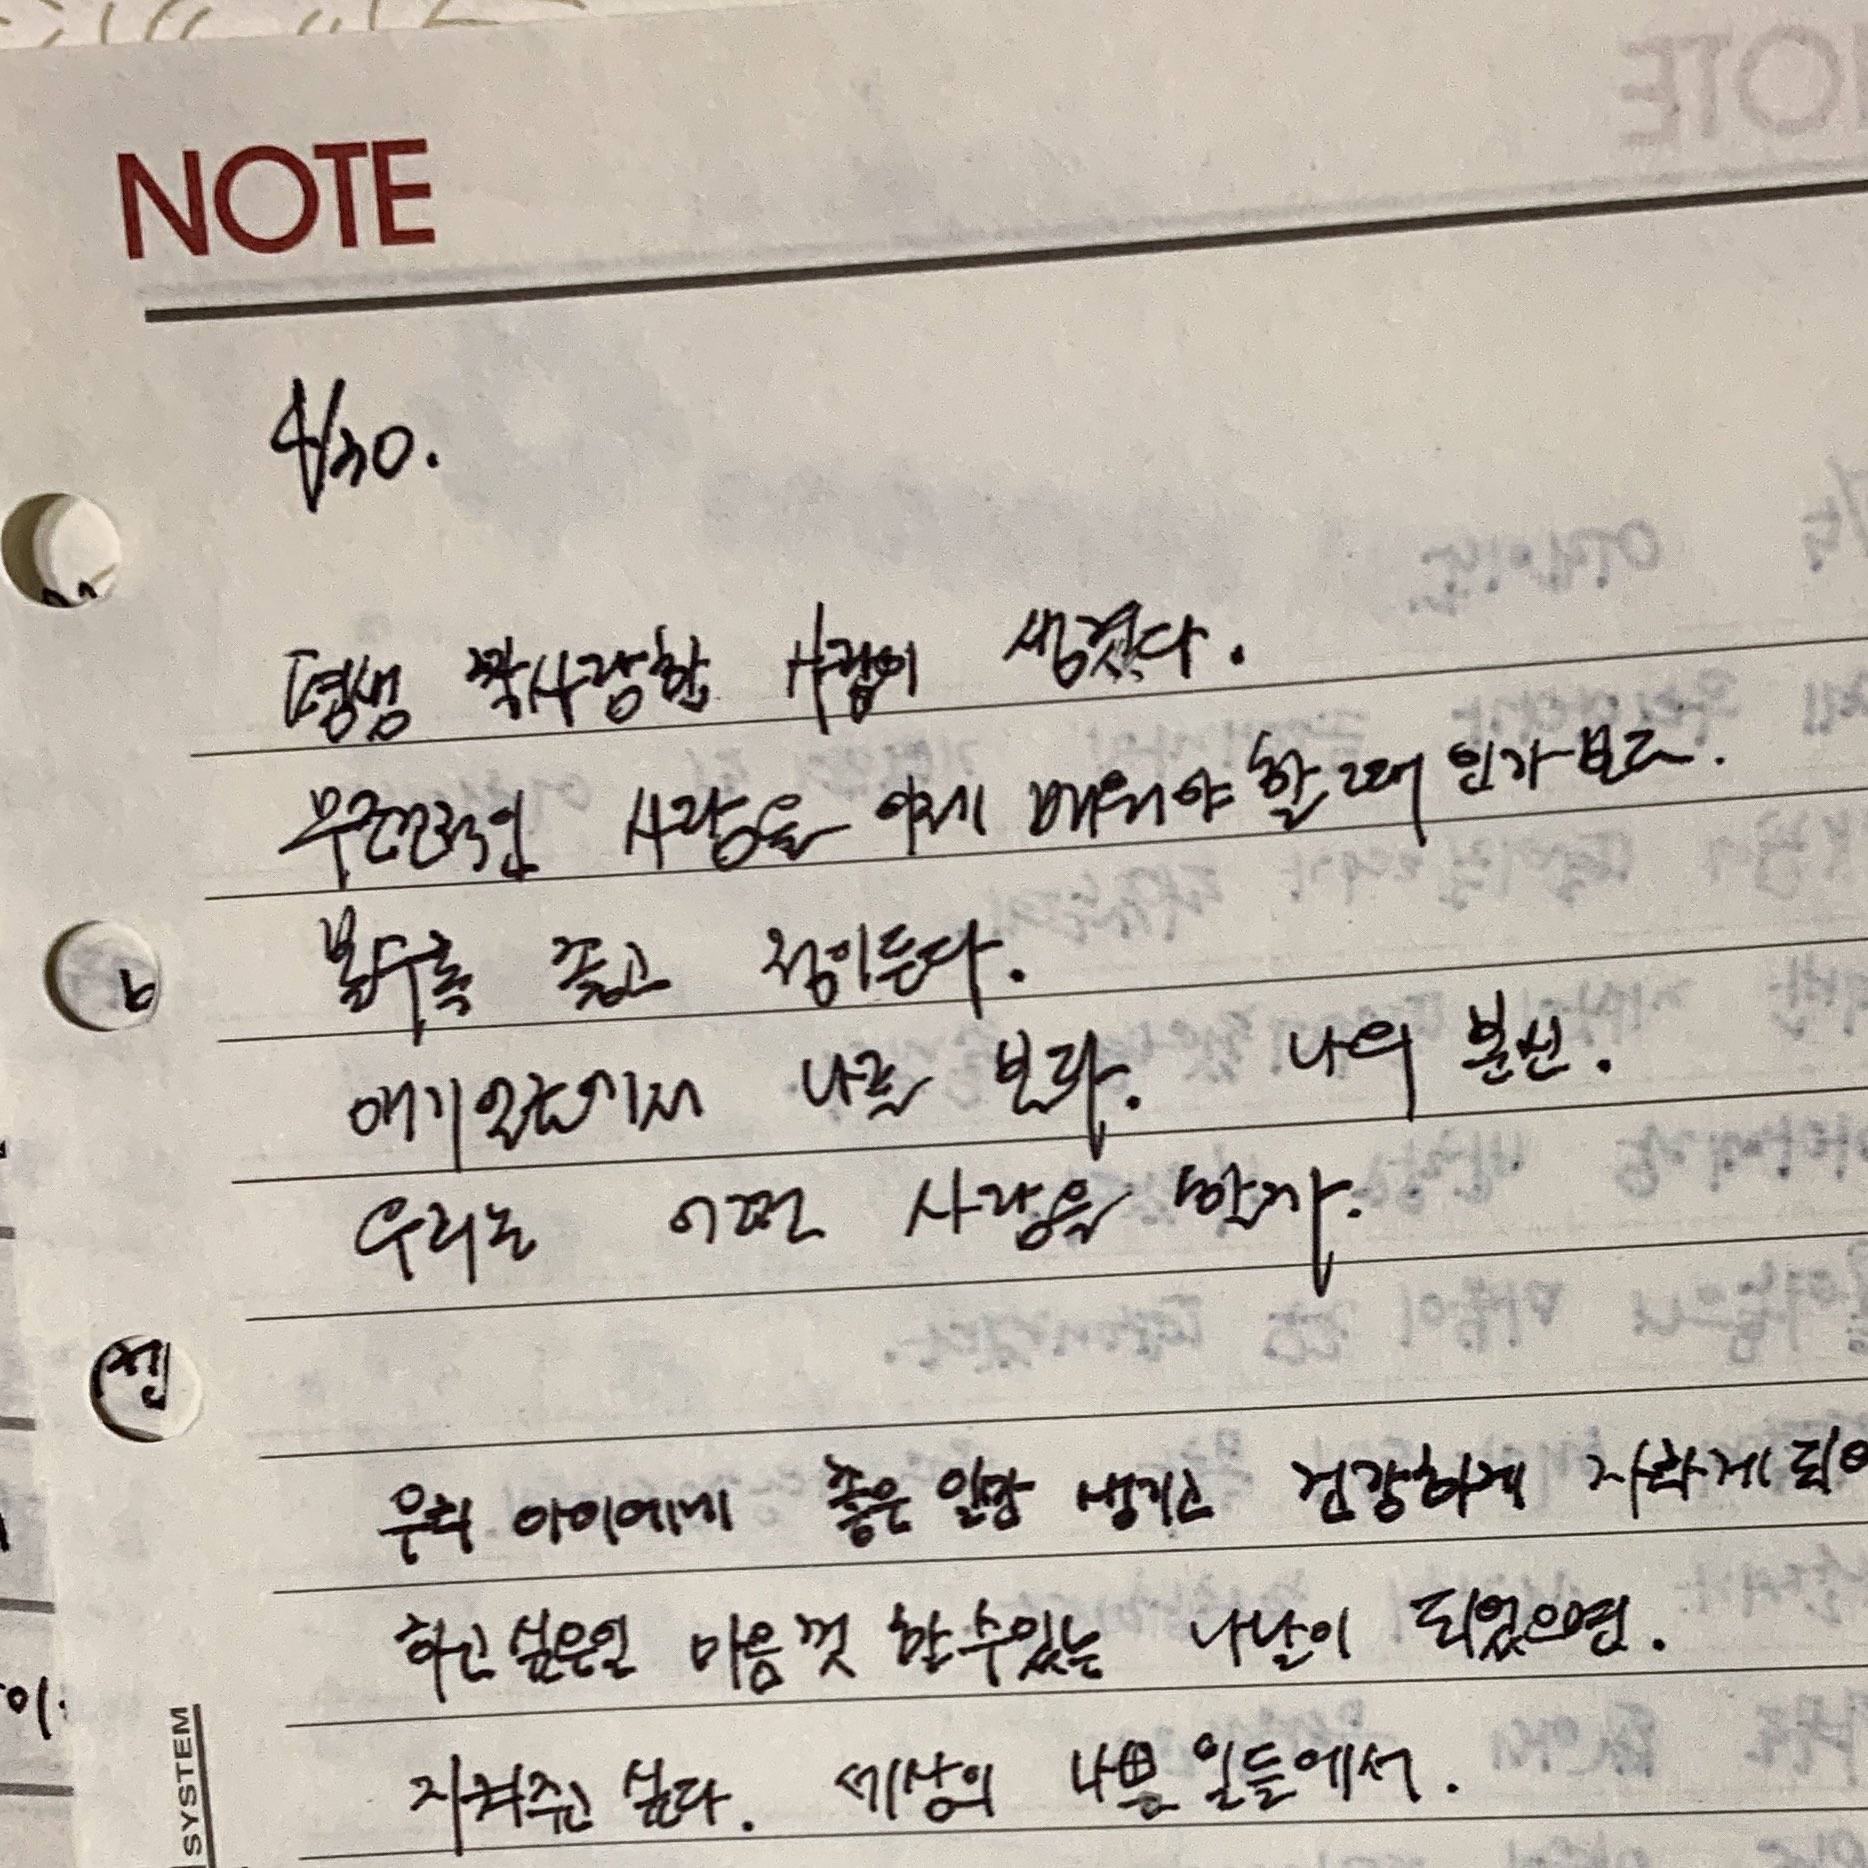 NOTE
4/30.
평생 짝사랑할 사람이 생겼다.
무조건적인 사랑을 이제 배워야 할 때인가보다.
볼수록 좋고 정이든다.
애기 얼굴에서 나를 본다. 나의 분신.
우리는 어떤 사랑을 할까.
우리 아이에게 좋은 일만 생기고 건강하게 자라게 되어
하고싶은일 마음껏 할수있는 나날이 되었으면.
지켜주고 싶다. 세상의 나쁜 일들에서.
SYSTEM